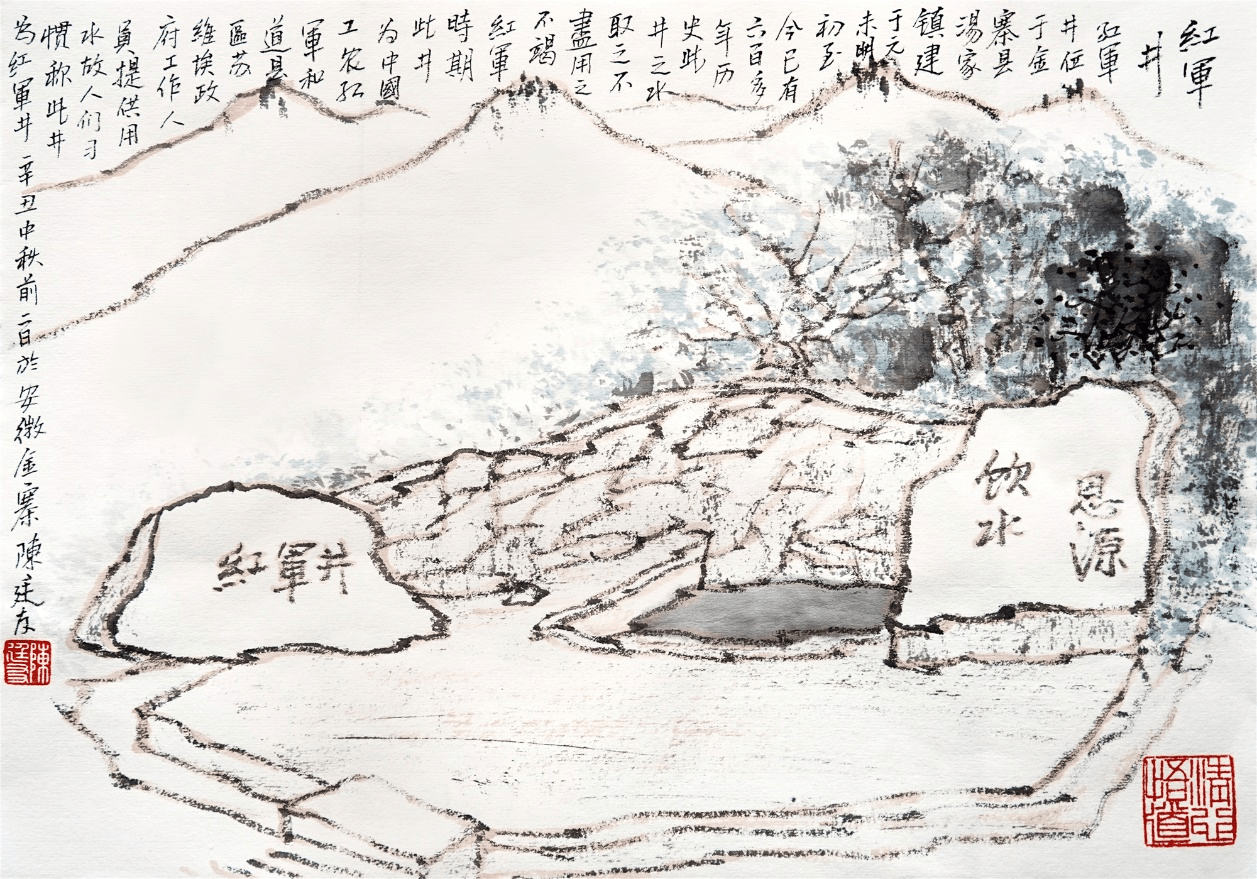 紅軍
井
紅軍
井位
于金
寨县
湯家
镇建
于元
末明
初至
今已有
六百多
年历
史此
井之水
取之不
盡用之
不竭
紅軍
時期
此井
為中國
工农红
軍和
道县
區苏
維埃政
府工作人
員提供用
水故人们习
惯称此井
為红軍井 辛丑中秋前二日於安徽金寨陳廷友
紅軍井
饮水
思源